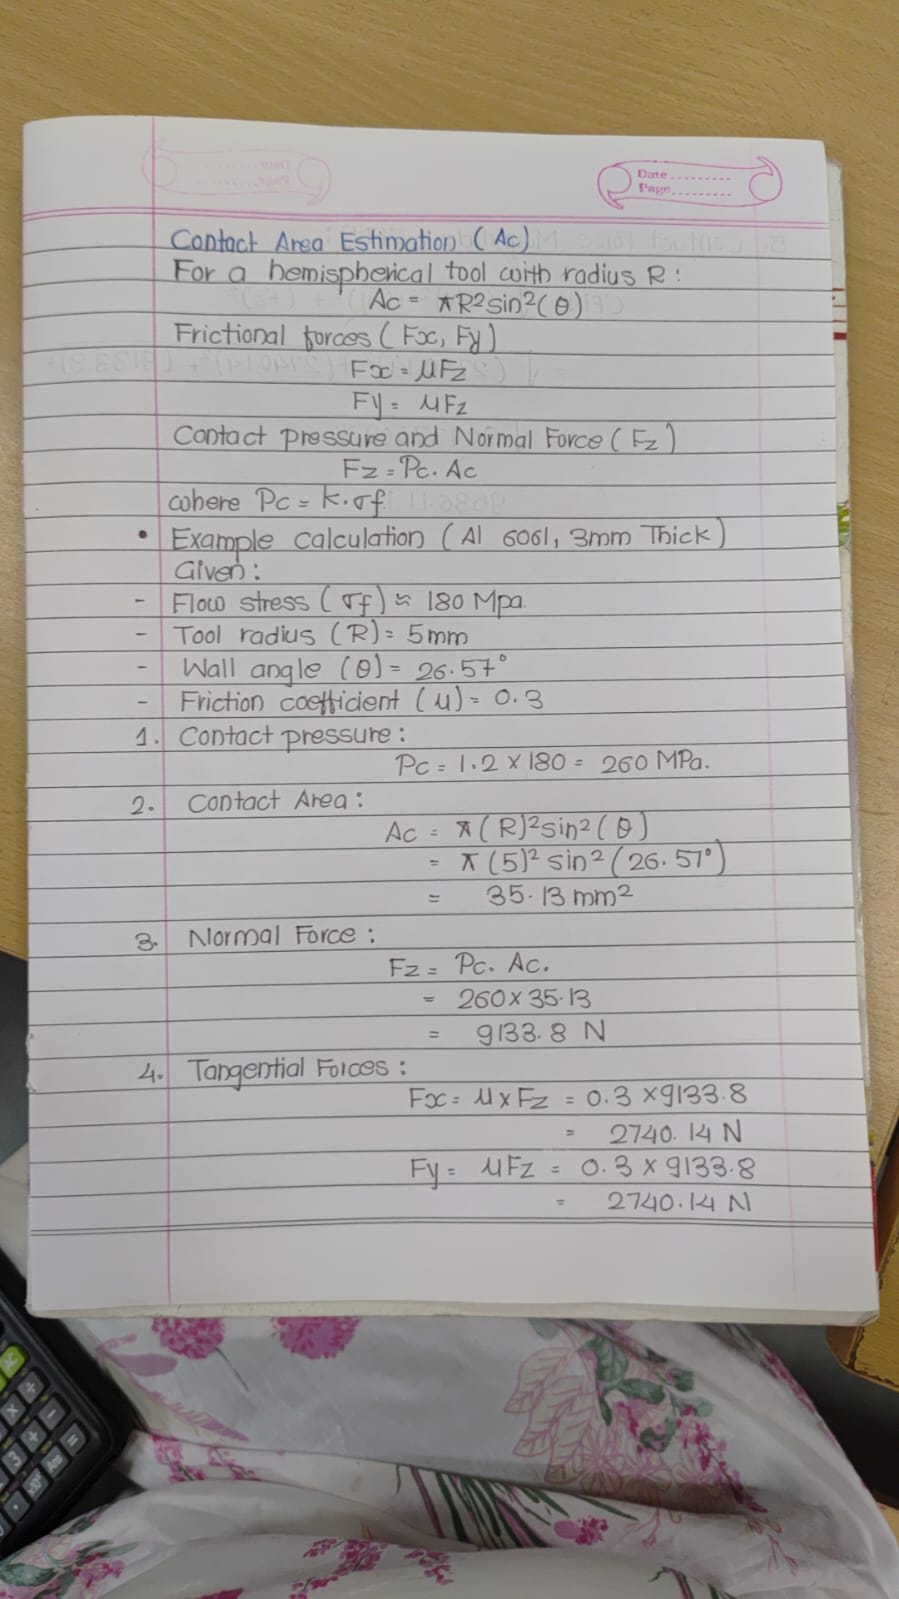 Date.........
Page.........
Contact Area Estimation (Ac)
For a hemispherical tool with radius R:
Ac = πR²sin²(θ)
Frictional forces (Fx, Fy)
Fx = μFz
Fy = μFz
Contact pressure and Normal Force (Fz)
Fz = Pc. Ac
where Pc = k.σf
• Example calculation (Al 6061, 3mm Thick)
Given:
- Flow stress (σf) ≈ 180 Mpa.
- Tool radius (R) = 5mm
- Wall angle (θ) = 26.57°
- Friction coefficient (μ) = 0.3
1. Contact pressure:
Pc = 1.2 × 180 = 260 MPa.
2. Contact Area:
Ac = π(R)²sin²(θ)
= π(5)² sin²(26.57°)
= 35.13 mm²
3. Normal Force:
Fz = Pc. Ac.
= 260 × 35.13
= 9133.8 N
4. Tangential Forces:
Fx = μ × Fz = 0.3 × 9133.8
= 2740.14 N
Fy = μFz = 0.3 × 9133.8
= 2740.14 N